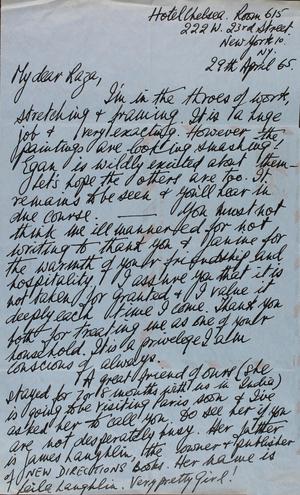 Hotel Chelsea. Room 615
222 W. 23rd Street.
New York 10.
NY.
29th April 65.
My dear Raza,
I'm in the throes of work,
stretching & framing. It is a huge
job & very exacting. However the
paintings are looking smashing!
Egan is wildly excited about them—
let's hope the others are too. It
remains to be seen & you'll hear in
due course. —— You must not
think me ill mannered for not
writing to thank you & Janine for
the warmth of your friendship and
hospitality. I assure you that it is
not taken for granted & I value it
deeply each time I come. Thank you
both for treating me as one of your
household. It is a privilege I am
conscious of always.
A great friend of ours (she
stayed for 7 or 8 months with us in India)
is going to be visiting Paris soon & I've
asked her to call you. So see her if you
are not desperately busy. Her father
is James Laughlin, the owner & publisher
of NEW DIRECTIONS Books. Her name is
Leila Laughlin. Very pretty Girl!